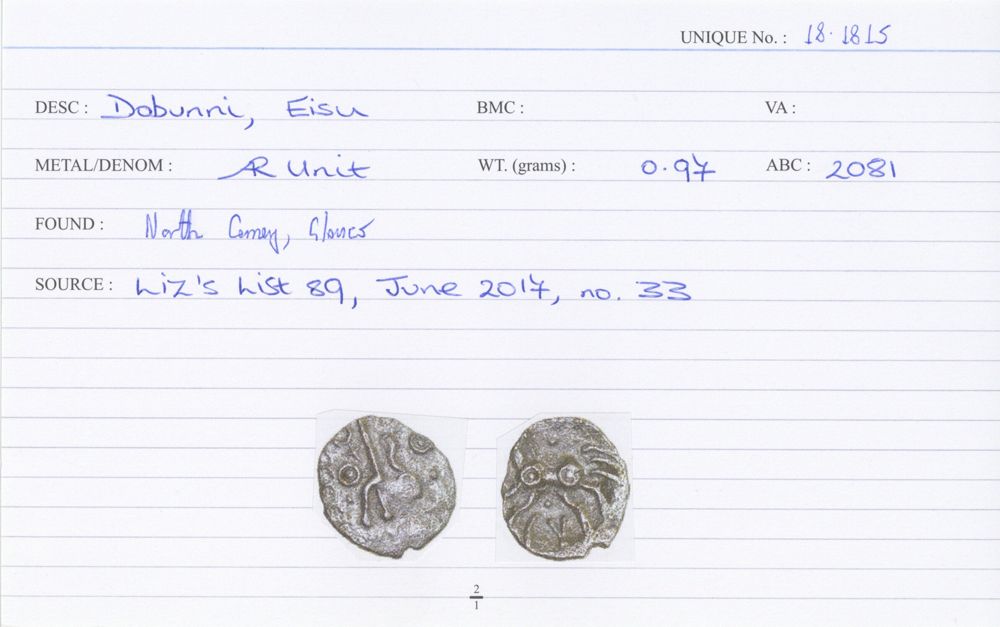 UNIQUE No. : 18.1815
DESC : Dobunni, Eisu BMC : VA :
METAL/DENOM : AR Unit WT. (grams) : 0.97 ABC : 2081
FOUND : North Cerney, Glouces
SOURCE : Liz's List 89, June 2017, no. 33
2
1